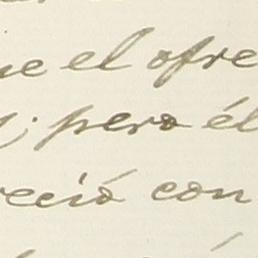 ue el ofre
; pero él
reció con